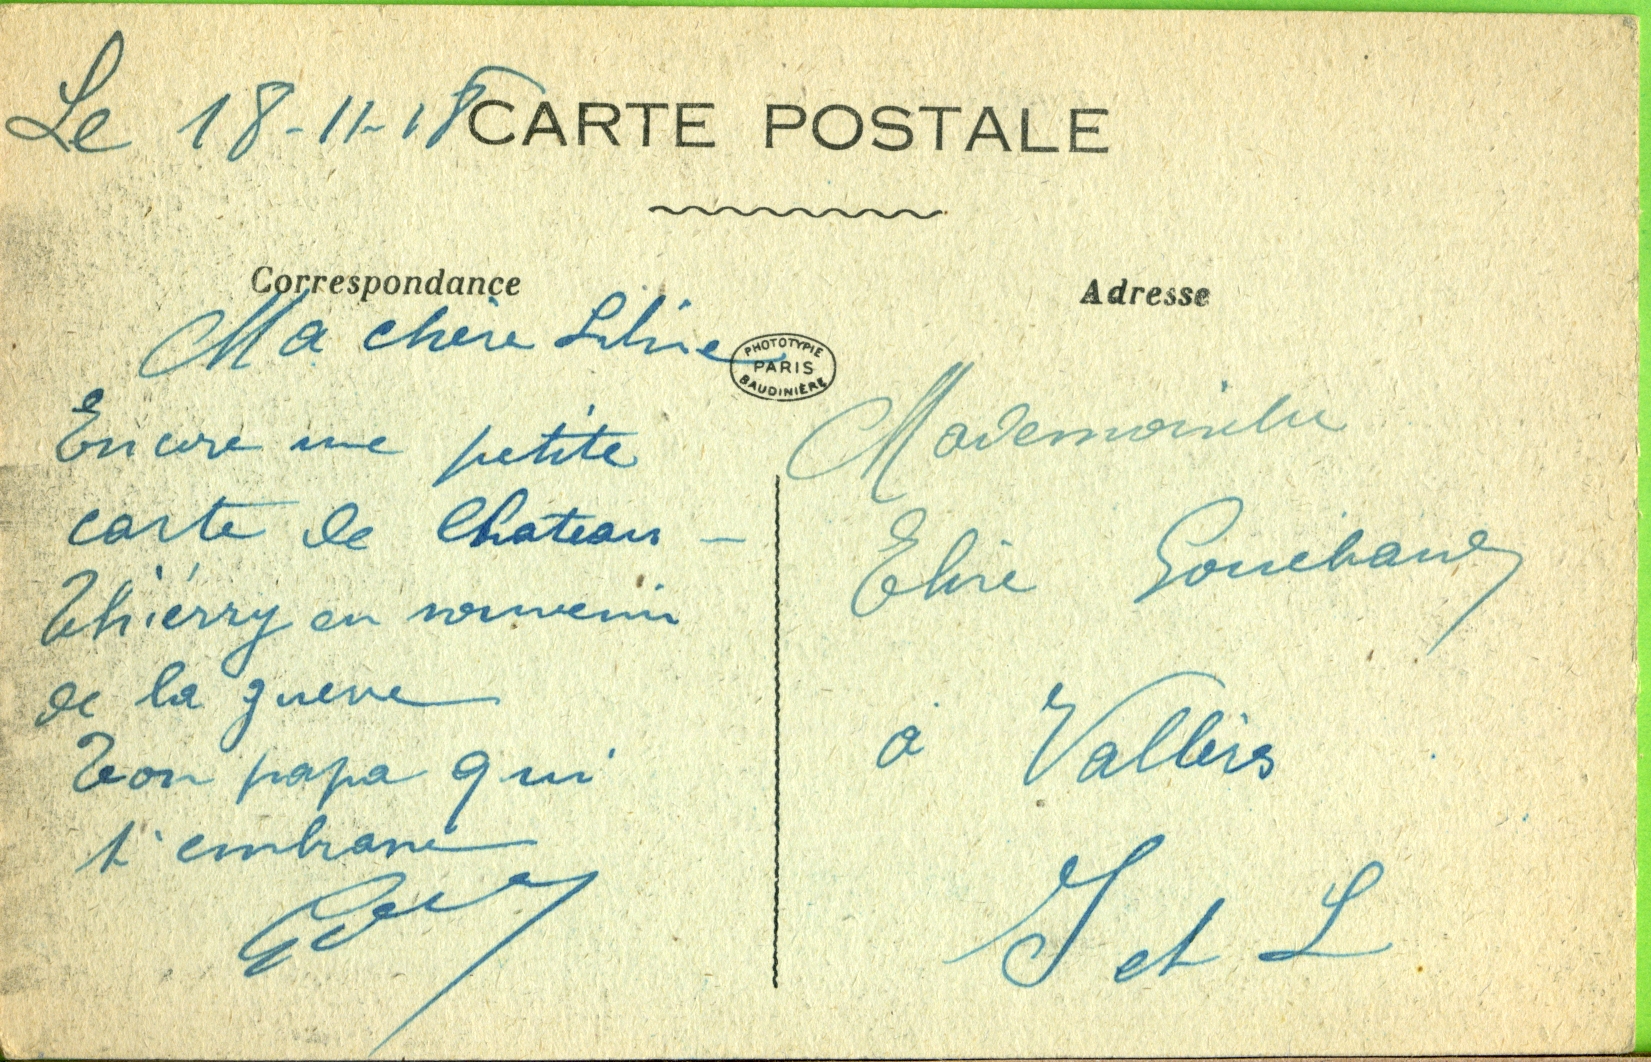 Le 18-11-18
CARTE POSTALE
Correspondance
Adresse
Ma chère Liline
PHOTOTYPIE
PARIS
BAUDINIÈRE
Encore une petite
carte de Chateau -
Thiérry en souvenir
de la guerre
Ton papa qui
t'embrasse
Mademoiselle
Elise
à Vallères
I et L